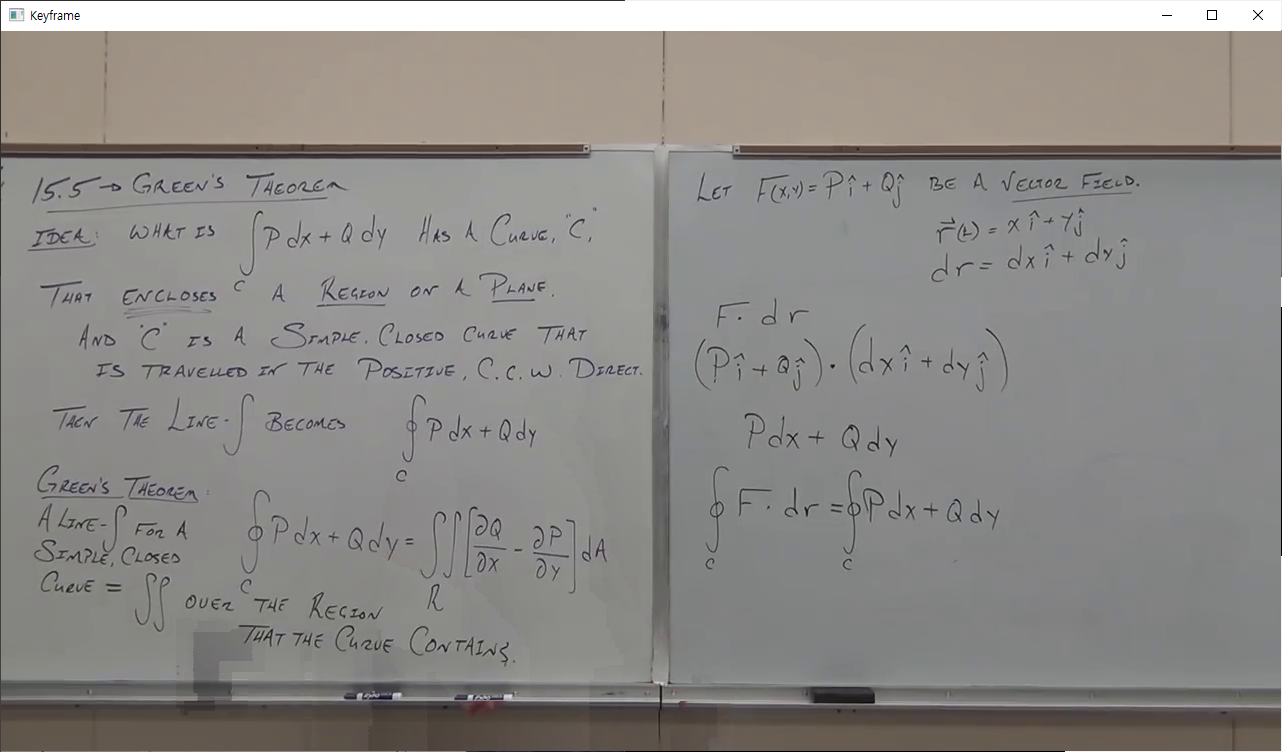 Keyframe
15.5 → GREEN'S THEOREM
IDEA: WHAT IS ∫_C P dx + Q dy HAS A CURVE, "C",
THAT ENCLOSES A REGION ON A PLANE.
AND "C" IS A SIMPLE, CLOSED CURVE THAT
IS TRAVELLED IN THE POSITIVE, C.C.W. DIRECT.
THEN THE LINE-∫ BECOMES ∮_C P dx + Q dy
GREEN'S THEOREM:
A LINE-∫ FOR A
SIMPLE, CLOSED
CURVE = ∬ OVER THE REGION
THAT THE CURVE CONTAINS.
∮_C P dx + Q dy = ∬_R [∂Q/∂x - ∂P/∂y] dA
LET F(x,y) = P î + Q ĵ BE A VECTOR FIELD.
r⃗(t) = x î + y ĵ
dr = dx î + dy ĵ
F · dr
(P î + Q ĵ) · (dx î + dy ĵ)
P dx + Q dy
∮_C F · dr = ∮_C P dx + Q dy